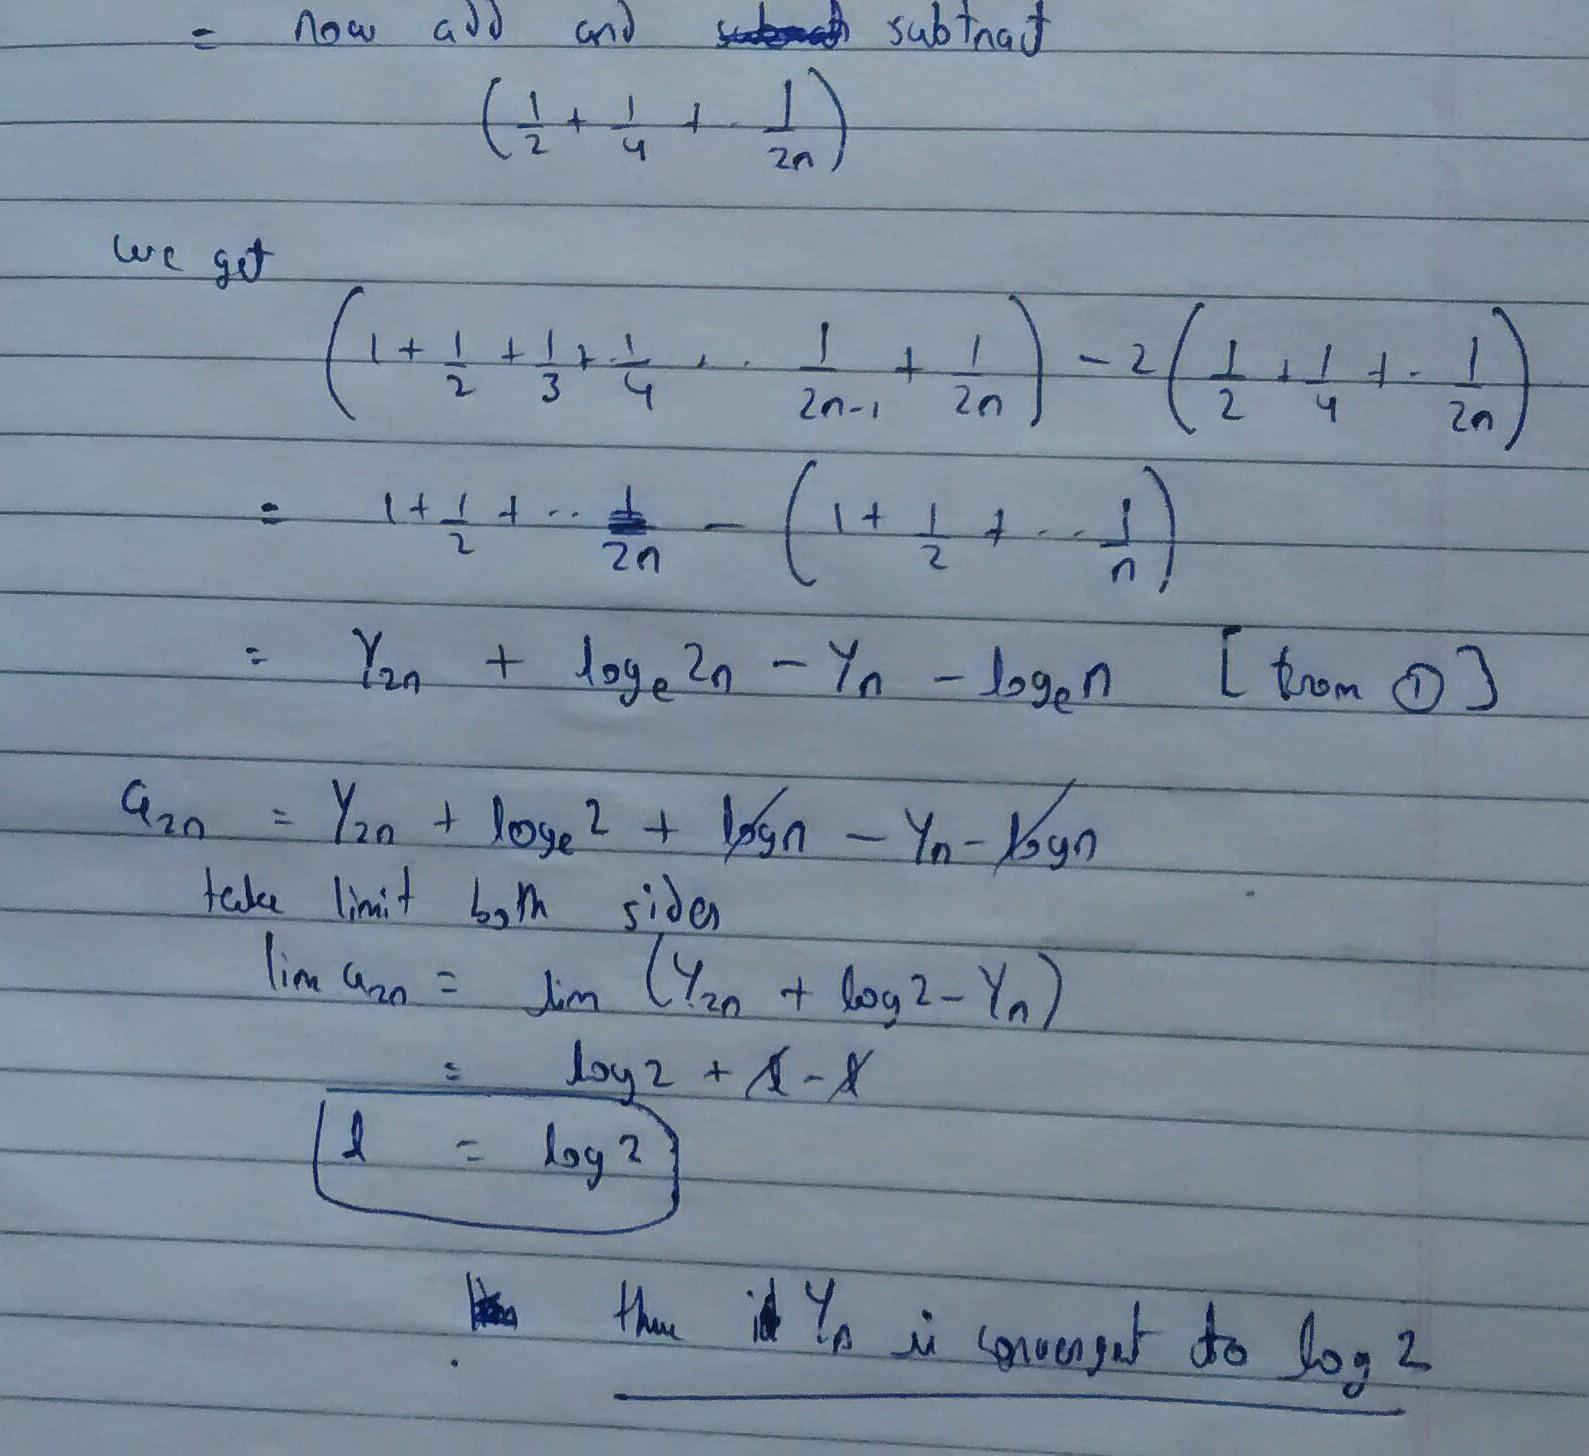 = now add and subtract
(1/2 + 1/4 + . 1/2n)
we get
(1 + 1/2 + 1/3 + 1/4 . . 1/2n-1 + 1/2n) - 2(1/2 + 1/4 + . 1/2n)
= 1 + 1/2 + .. 1/2n - (1 + 1/2 + .. 1/n)
= Y₂ₙ + logₑ 2n - Yₙ - logₑ n [from ①]
a₂ₙ = Y₂ₙ + logₑ 2 + logn - Yₙ - logn
take limit both sides
lim a₂ₙ = lim (Y₂ₙ + log 2 - Yₙ)
= log 2 + l - l
l = log 2
Yₙ is converget to log 2